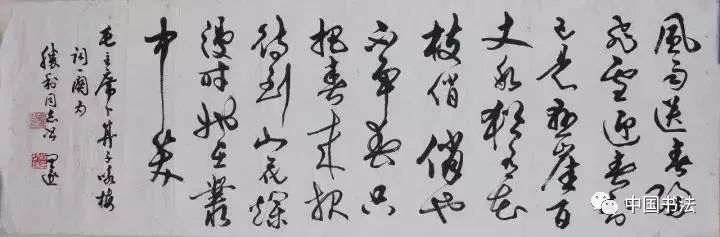 風雨送春歸
飛雪迎春到
已是懸崖百
丈冰猶有花
枝俏俏也
不争春只
把春来报
待到山花爛
漫时她在叢
中笑
毛主席卜算子咏梅
词一阕为
同志
中国书法